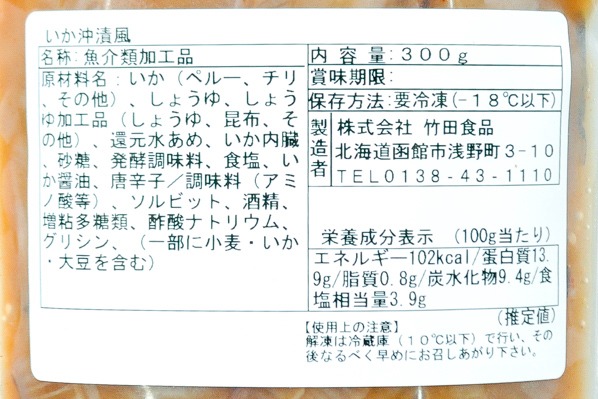 いか沖漬風
名称:魚介類加工品
原材料名:いか（ペルー、チリ
、その他）、しょうゆ、しょう
ゆ加工品（しょうゆ、昆布、そ
の他）、還元水あめ、いか内臓
、砂糖、発酵調味料、食塩、い
か醤油、唐辛子／調味料（アミ
ノ酸等）、ソルビット、酒精、
増粘多糖類、酢酸ナトリウム、
グリシン、（一部に小麦・いか
・大豆を含む）
内容量:300g
賞味期限:
保存方法:要冷凍(-18℃以下)
製造者
株式会社 竹田食品
北海道函館市浅野町3-10
TEL0138-43-1110
栄養成分表示 (100g当たり)
エネルギー102kcal/蛋白質13.
9g/脂質0.8g/炭水化物9.4g/食
塩相当量3.9g
(推定値)
【使用上の注意】
解凍は冷蔵庫(10℃以下)で行い、その
後なるべく早めにお召しあがり下さい。